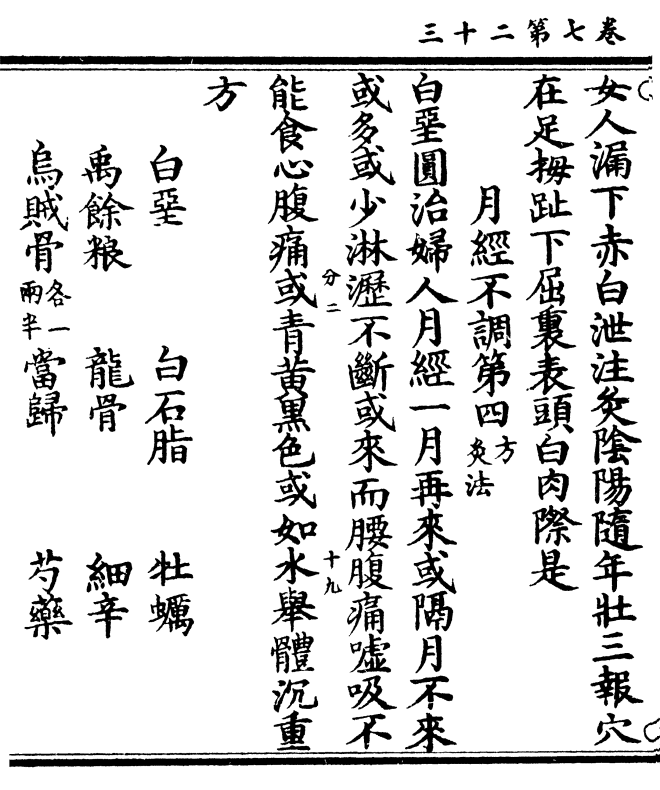 卷七第二十三
女人漏下赤白泄注灸陰陽隨年壯三報穴
在足拇趾下屈裏表頭白肉際是
月經不調第四方灸法
白堊圓治婦人月經一月再來或隔月不來
或多或少淋瀝不斷或來而腰腹痛噓吸不
能食心腹痛或青黃黑色或如水舉體沉重
分二
十九
方
白堊 白石脂 牡蠣
禹餘粮 龍骨 細辛
烏賊骨各一兩半 當歸 芍藥